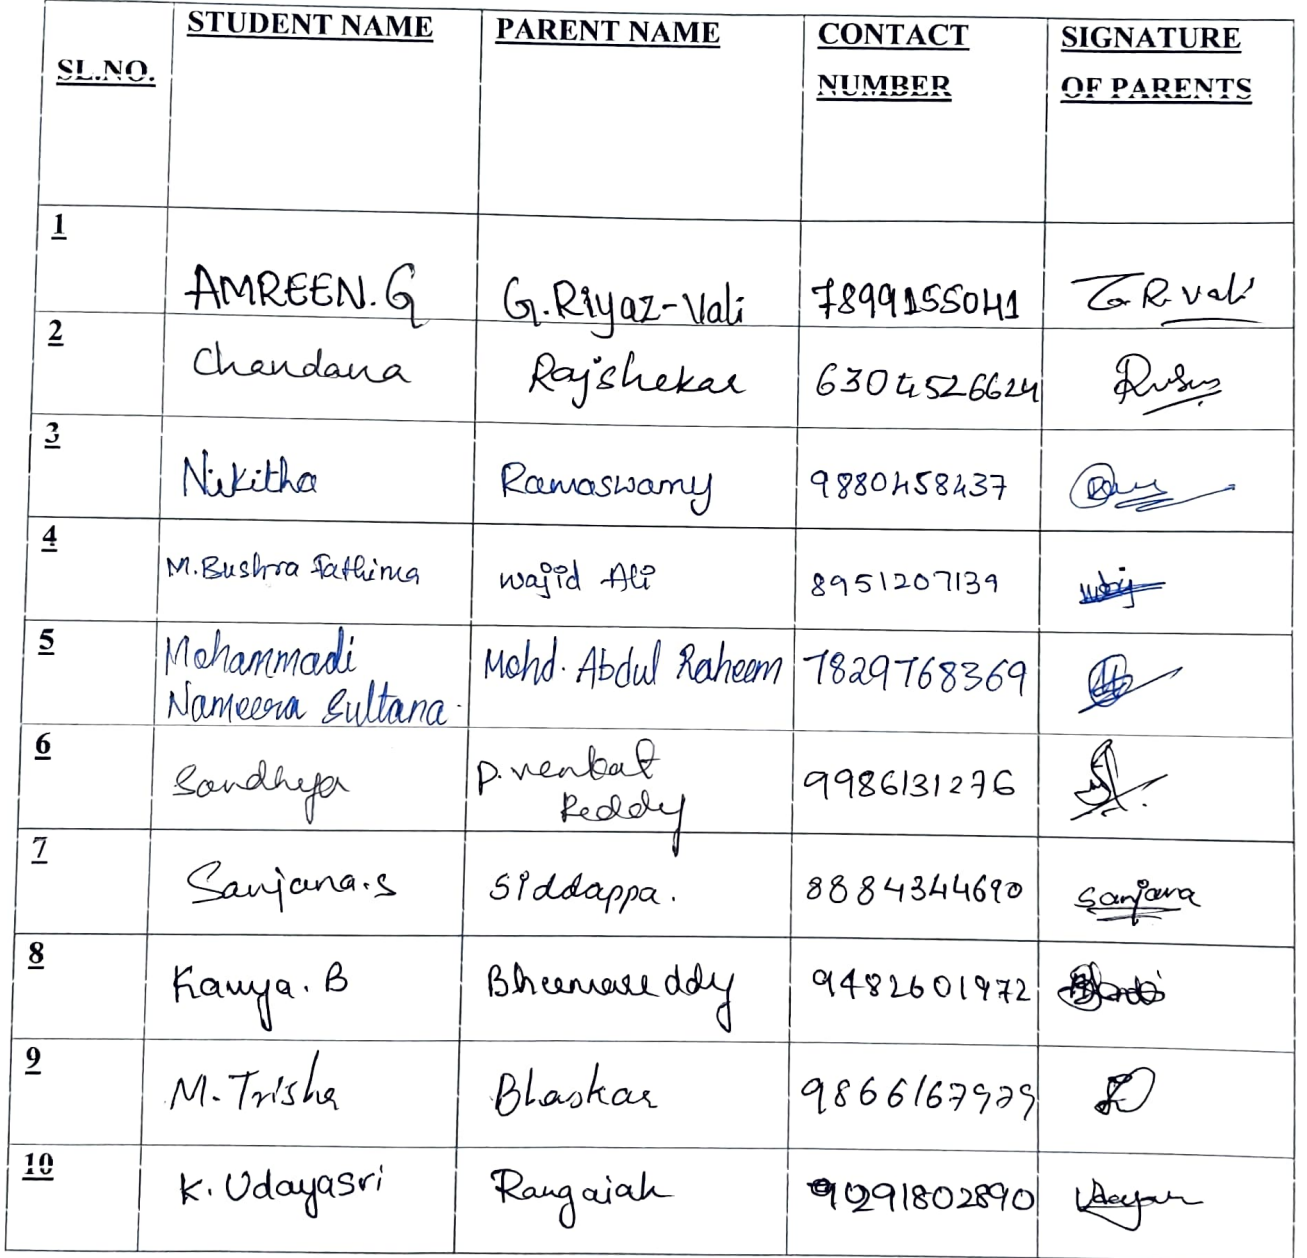 SL.NO. STUDENT NAME PARENT NAME CONTACT NUMBER SIGNATURE OF PARENTS
1 AMREEN.G G.Riyaz-Vali 7899155041 G.R.vali
2 Chandana Rajshekar 6304526624
3 Nikitha Ramaswamy 9880458437
4 M.Bushra Fathima wajid Ali 8951207139
5 Mohammadi Mohd. Abdul Raheem 7829768369
Nameera Sultana.
6 Sandhya P. venkat 9986131276
Reddy
7 Sanjana.S Siddappa. 8884344690 Sanjana
8 Kavya. B Bheemareddy 9482601972
9 M. Trisha Bhaskar 9866167979
10 K. Udayasri Rangaiah 9291802890